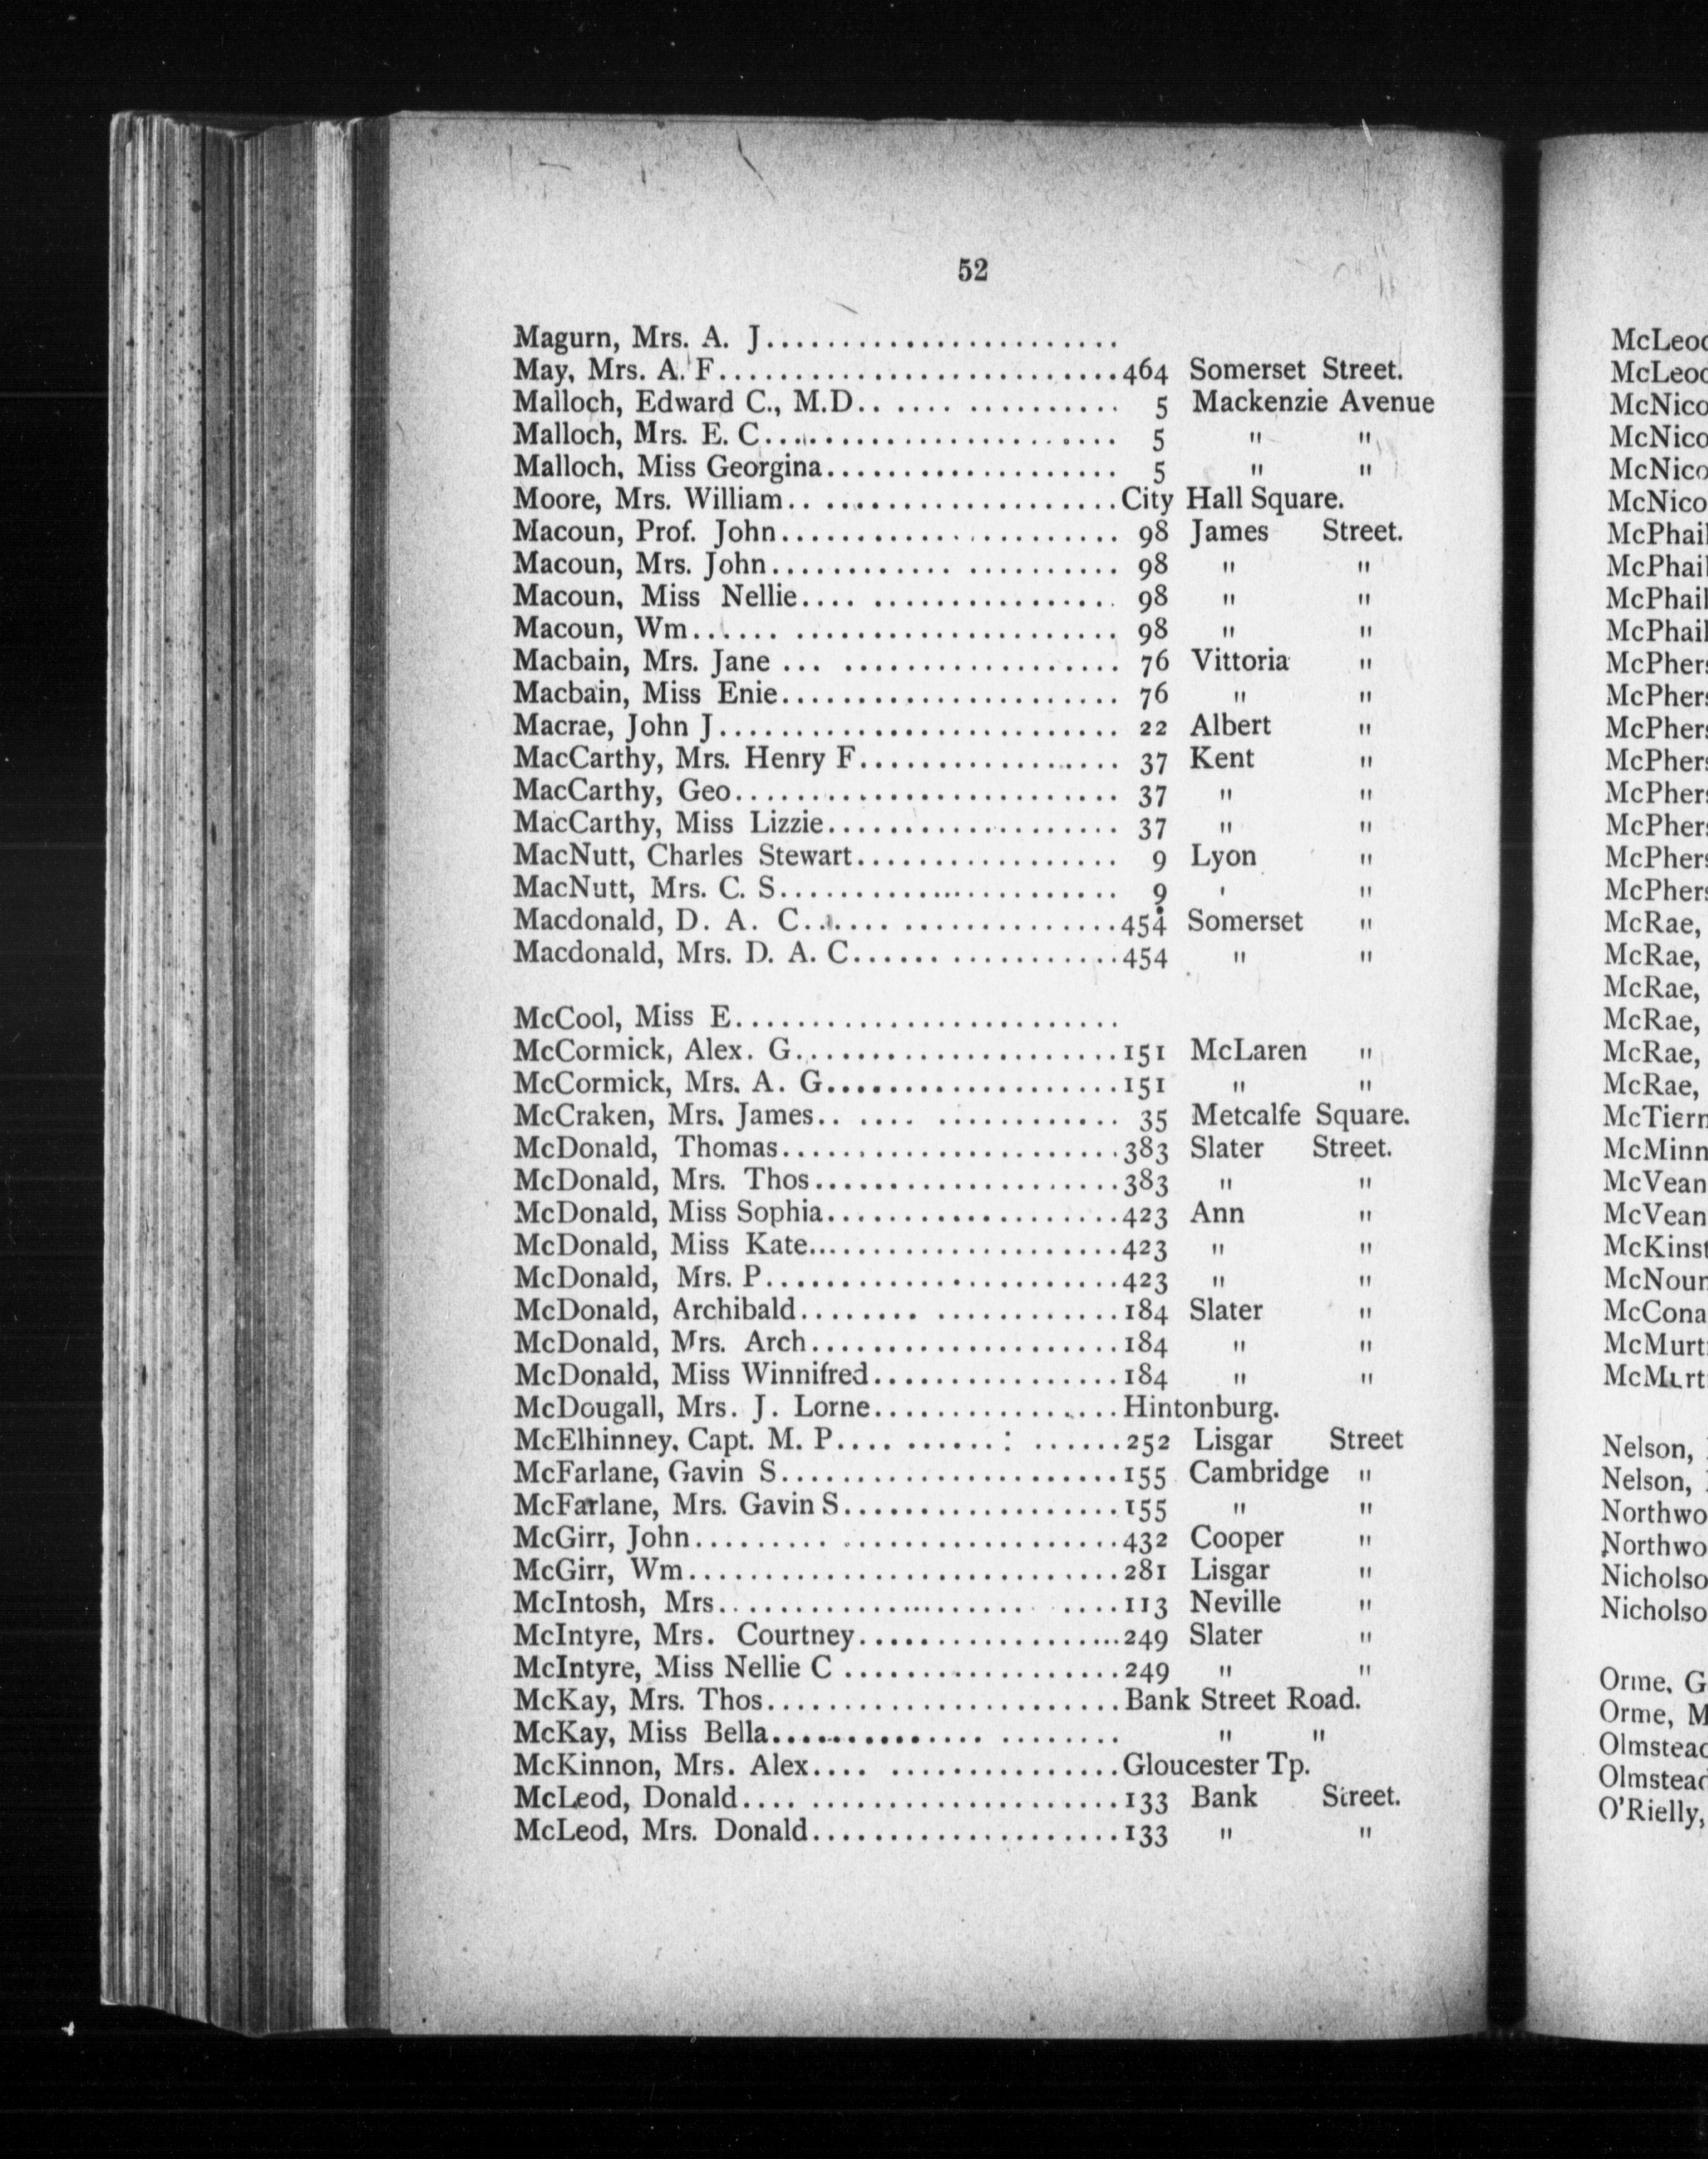 52
Magurn, Mrs. A. J........................
May, Mrs. A. F...........................464 Somerset Street.
Malloch, Edward C., M.D.. .... .......... 5 Mackenzie Avenue
Malloch, Mrs. E. C........................ 5 " "
Malloch, Miss Georgina.................... 5 " "
Moore, Mrs. William.. ....................City Hall Square.
Macoun, Prof. John....................... 98 James Street.
Macoun, Mrs. John............ .......... 98 " "
Macoun, Miss Nellie.... ................ 98 " "
Macoun, Wm...... ...................... 98 " "
Macbain, Mrs. Jane ... ................... 76 Vittoria "
Macbain, Miss Enie....................... 76 " "
Macrae, John J........................... 22 Albert "
MacCarthy, Mrs. Henry F.................. 37 Kent "
MacCarthy, Geo.......................... 37 " "
MacCarthy, Miss Lizzie.................... 37 " "
MacNutt, Charles Stewart.................. 9 Lyon "
MacNutt, Mrs. C. S....................... 9 ' "
Macdonald, D. A. C......................454 Somerset "
Macdonald, Mrs. D. A. C...... ............454 " "
McCool, Miss E..........................
McCormick, Alex. G......................151 McLaren "
McCormick, Mrs. A. G....................151 " "
McCraken, Mrs. James.. .... ............ 35 Metcalfe Square.
McDonald, Thomas.......................383 Slater Street.
McDonald, Mrs. Thos.....................383 " "
McDonald, Miss Sophia....................423 Ann "
McDonald, Miss Kate.....................423 " "
McDonald, Mrs. P........................423 " "
McDonald, Archibald........ ............184 Slater "
McDonald, Mrs. Arch.....................184 " "
McDonald, Miss Winnifred.................184 " "
McDougall, Mrs. J. Lorne.................Hintonburg.
McElhinney, Capt. M. P.... ......: ......252 Lisgar Street
McFarlane, Gavin S.......................155 Cambridge "
McFarlane, Mrs. Gavin S...................155 " "
McGirr, John......... ...................432 Cooper "
McGirr, Wm.............................281 Lisgar "
McIntosh, Mrs..................... ....113 Neville "
McIntyre, Mrs. Courtney..................249 Slater "
McIntyre, Miss Nellie C ...................249 " "
McKay, Mrs. Thos........................Bank Street Road.
McKay, Miss Bella.............. ........ " "
McKinnon, Mrs. Alex.... ...............Gloucester Tp.
McLeod, Donald.... .....................133 Bank Street.
McLeod, Mrs. Donald.....................133 " "
McRae,
McRae,
McRae,
McRae,
McRae,
McRae,
Nelson,
Nelson,
Orme, G
Orme, M
O'Rielly,